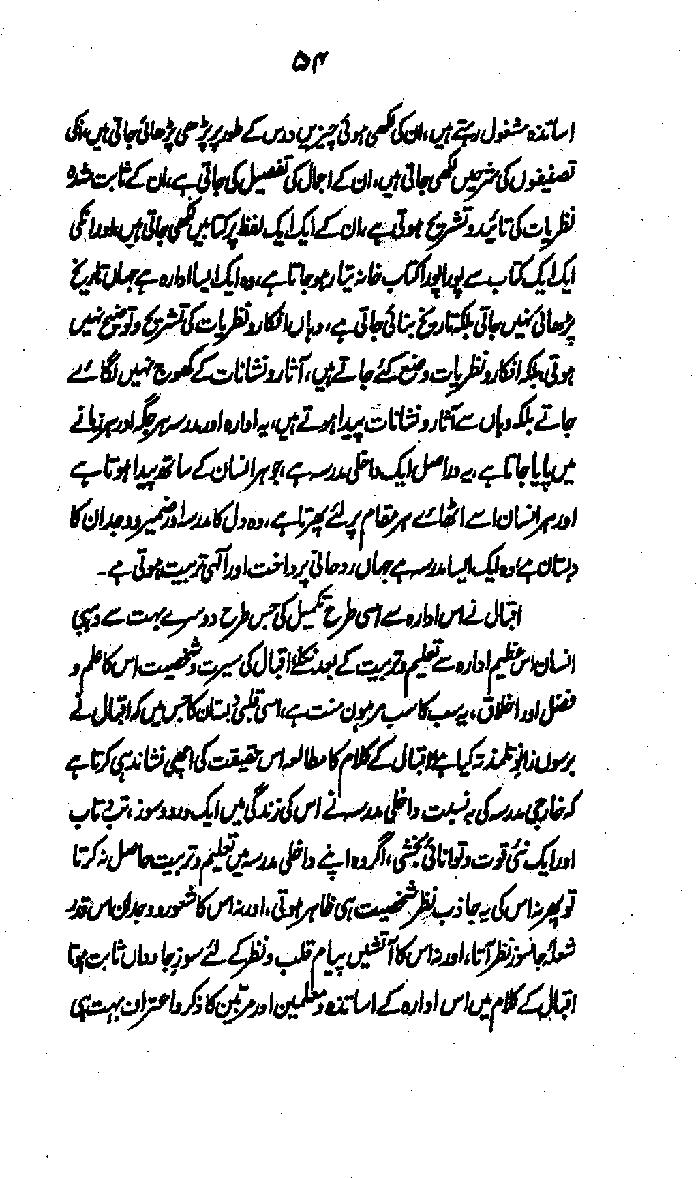 ۵۴
اساتذہ مشغول رہتے ہیں، ان کی لکھی ہوئی چیزیں درس کے طور پر پڑھی پڑھائی جاتی ہیں، انکی
تصنیفوں کی شرحیں لکھی جاتی ہیں، ان کے اجمال کی تفصیل کی جاتی ہے، ان کے ثابت شدہ
نظریات کی تائید و تشریح ہوتی ہے، ان کے ایک ایک لفظ پر کتابیں لکھی جاتی ہیں، اور انکی
ایک ایک کتاب سے پورا پورا کتاب خانہ تیار ہو جاتا ہے، وہ ایک ایسا ادارہ ہے جہاں تاریخ
پڑھائی نہیں جاتی بلکہ تاریخ بنائی جاتی ہے، وہاں افکار و نظریات کی تشریح و توضیح نہیں
ہوتی، بلکہ افکار و نظریات وضع کئے جاتے ہیں، آثار و نشانات کے کھوج نہیں لگائے
جاتے بلکہ وہاں سے آثار و نشانات پیدا ہوتے ہیں، یہ ادارہ اور مدرسہ ہر جگہ اور ہر زمانے
میں پایا جاتا ہے، یہ دراصل ایک داخلی مدرسہ ہے، جو ہر انسان کے ساتھ پیدا ہوتا ہے
اور ہر انسان اسے اٹھائے ہر مقام پر لئے پھرتا ہے، وہ دل کا مدرسہ اور ضمیر و وجدان کا
دبستان ہے، وہ ایک ایسا مدرسہ ہے جہاں روحانی پرداخت اور الٰہی تربیت ہوتی ہے۔
اقبال نے اس ادارہ سے اسی طرح تکمیل کی جس طرح دوسرے بہت سے وہبی
انسان اس عظیم ادارہ سے تعلیم و تربیت کے بعد نکلے، اقبال کی سیرت و شخصیت اس کا علم و
فضل اور اخلاق، یہ سب کا سب مرہون منت ہے، اسی قلبی دبستان کا جس میں کہ اقبال نے
برسوں زانوئے تلمذ تہ کیا ہے، اقبال کے کلام کا مطالعہ اس حقیقت کی اچھی نشاندہی کرتا ہے
کہ خارجی مدرسہ کی بہ نسبت داخلی مدرسہ نے اس کی زندگی میں ایک درد و سوز، تب و تاب
اور ایک نئی قوت و توانائی بخشی، اگر وہ اپنے داخلی مدرسہ میں تعلیم و تربیت حاصل نہ کرتا
تو پھر نہ اس کی یہ جاذب نظر شخصیت ہی ظاہر ہوتی، اور نہ اس کا شعور و وجدان اس قدر
شعلہ جانسوز نظر آتا، اور نہ اس کا آتشیں پیام قلب و نظر کے لئے سوز جاوداں ثابت ہوتا
اقبال کے کلام میں اس ادارہ کے اساتذہ و معلمین اور مربین کا ذکر و اعتراف بہت ہی